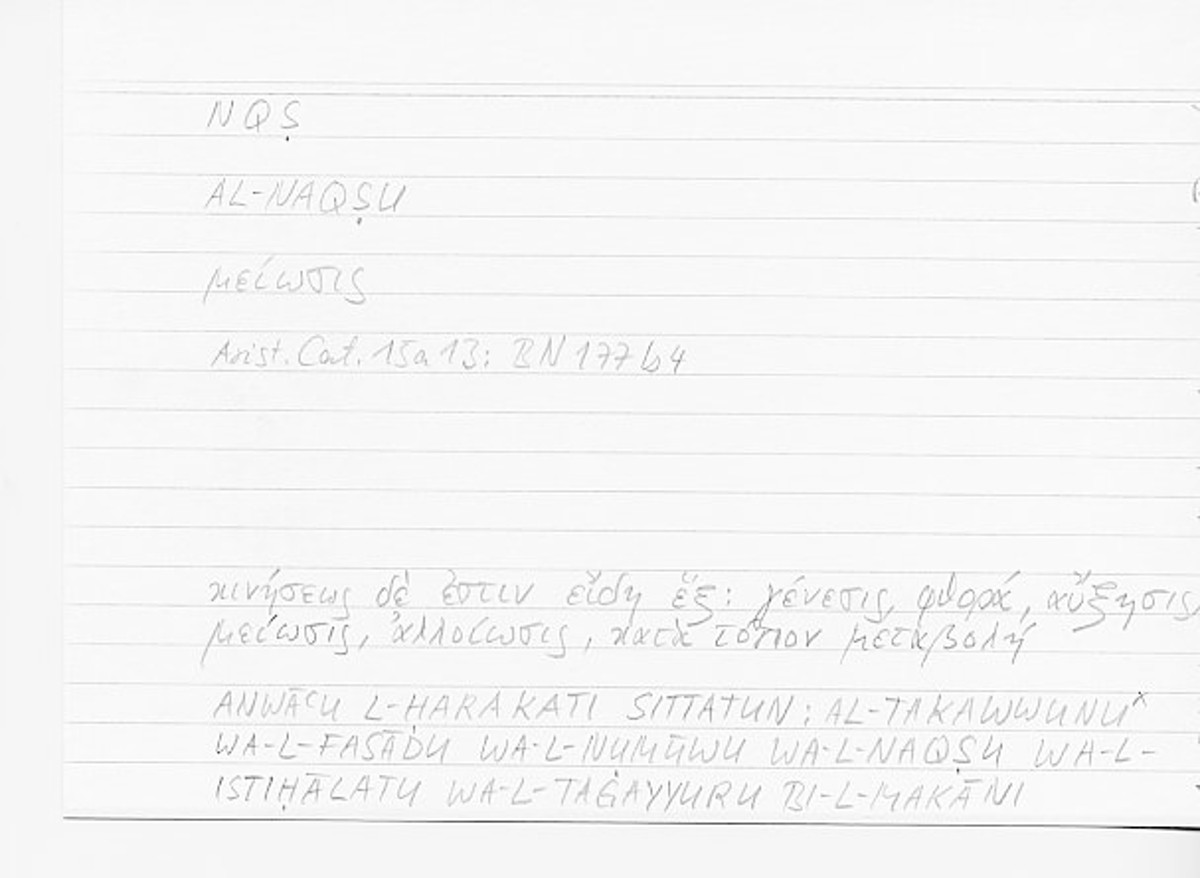 NQṢ
AL-NAQṢU
μείωσις
Arist. Cat. 15a13: BN 177b4
κινήσεως δέ ἐστιν εἴδη ἕξ: γένεσις, φθορά, αὔξησις,
μείωσις, ἀλλοίωσις, κατὰ τόπον μεταβολή
ANWĀʿU L-ḤARAKATI SITTATUN: AL-TAKAWWUNUˣ
WA-L-FASĀDU WA-L-NUMŪWU WA-L-NAQṢU WA-L-
ISTIḤĀLATU WA-L-TAĠAYYURU BI-L-MAKĀNI